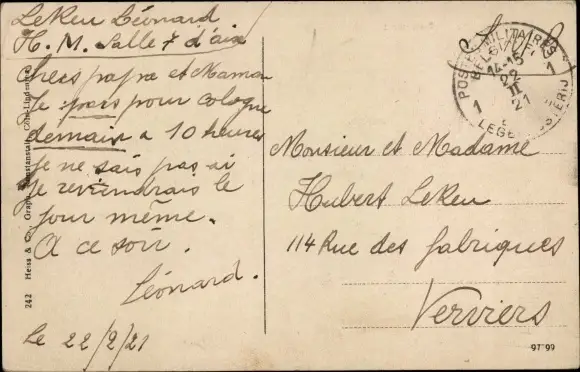 LeKeu Léonard
H. M. Salle 7 d'aix
Chers papa et Maman
Je pars pour Cologne
demain a 10 heures
je ne sais pas si
je reviendrais le
jour même.
A ce soir.
Léonard.
Le 22/2/21
242 Heiss & Co., Graph. Kunstanstalt, Cöln-Lindenthal
POSTES MILITAIRES
BELGIQUE
14-15
22
II
21
1 1
LEGERPOSTERIJ
Monsieur et Madame
Hubert LeKeu
114 Rue des fabriques
Verviers
97-99